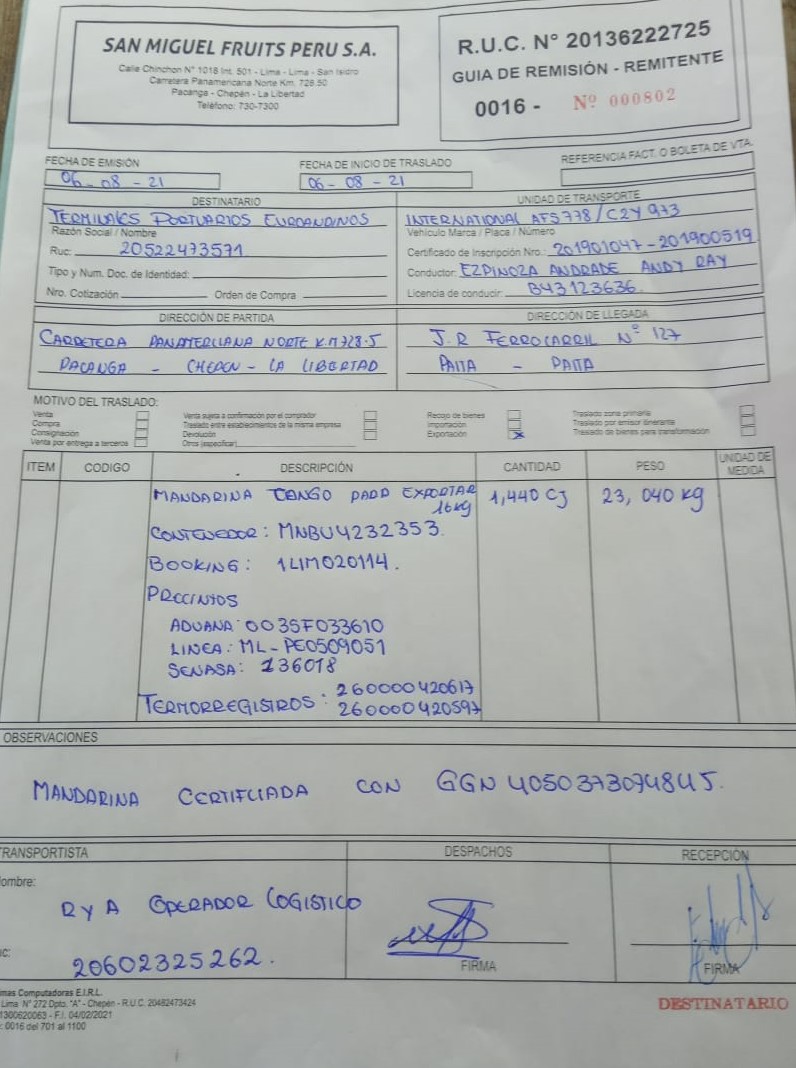 SAN MIGUEL FRUITS PERU S.A.
Calle Chinchon N° 1018 Int. 501 - Lima - Lima - San Isidro
Carretera Panamericana Norte Km. 728.50
Pacanga - Chepén - La Libertad
Teléfono: 730-7300
R.U.C. N° 20136222725
GUIA DE REMISIÓN - REMITENTE
0016 - Nº 000802
FECHA DE EMISIÓN
06 - 08 - 21
FECHA DE INICIO DE TRASLADO
06 - 08 - 21
REFERENCIA FACT. O BOLETA DE VTA.
DESTINATARIO
TERMINALES PORTUARIOS EUROANDINOS
Razón Social / Nombre
Ruc: 20522473571
Tipo y Num. Doc. de Identidad:
Nro. Cotización Orden de Compra
UNIDAD DE TRANSPORTE
INTERNATIONAL AFS778/C2Y 973
Vehículo Marca / Placa / Número
Certificado de Inscripción Nro.: 201901047-201900519
Conductor: EZPINOZA ANDRADE ANDY RAY
Licencia de conducir: B43123636.
DIRECCIÓN DE PARTIDA
CARRETERA PANAMERICANA NORTE KM728.5
PACANGA - CHEPEN - LA LIBERTAD
DIRECCIÓN DE LLEGADA
J.R FERROCARRIL N° 127
PAITA - PAITA
MOTIVO DEL TRASLADO:
Venta
Compra
Consignación
Venta por entrega a terceros
Venta sujeta a confirmación por el comprador
Traslado entre establecimientos de la misma empresa
Devolución
Otros (especificar)
Recojo de bienes
Importación
Exportación X
Traslado zona primaria
Traslado por emisor itinerante
Traslado de bienes para transformación
ITEM CODIGO DESCRIPCIÓN CANTIDAD PESO UNIDAD DE MEDIDA
MANDARINA TANGO PARA EXPORTAR 1,440 CJ 23,040 Kg
16kg
CONTENEDOR: MNBU4232353.
BOOKING: 1LIM020114.
PRECINTOS
ADUANA: 0035F033610
LINEA: ML-PE0509051
SENASA: 136018
TERMORREGISTROS: 260000420617
260000420597
OBSERVACIONES
MANDARINA CERTIFICADA CON GGN 4050373074845.
TRANSPORTISTA
ombre:
R Y A OPERADOR LOGISTICO
20602325262.
DESPACHOS
FIRMA
RECEPCIÓN
FIRMA
mas Computadoras E.I.R.L.
Lima N° 272 Dpto. "A" - Chepén - R.U.C. 20482473424
1300620063 - F.I. 04/02/2021
: 0016 del 701 al 1100
DESTINATARIO